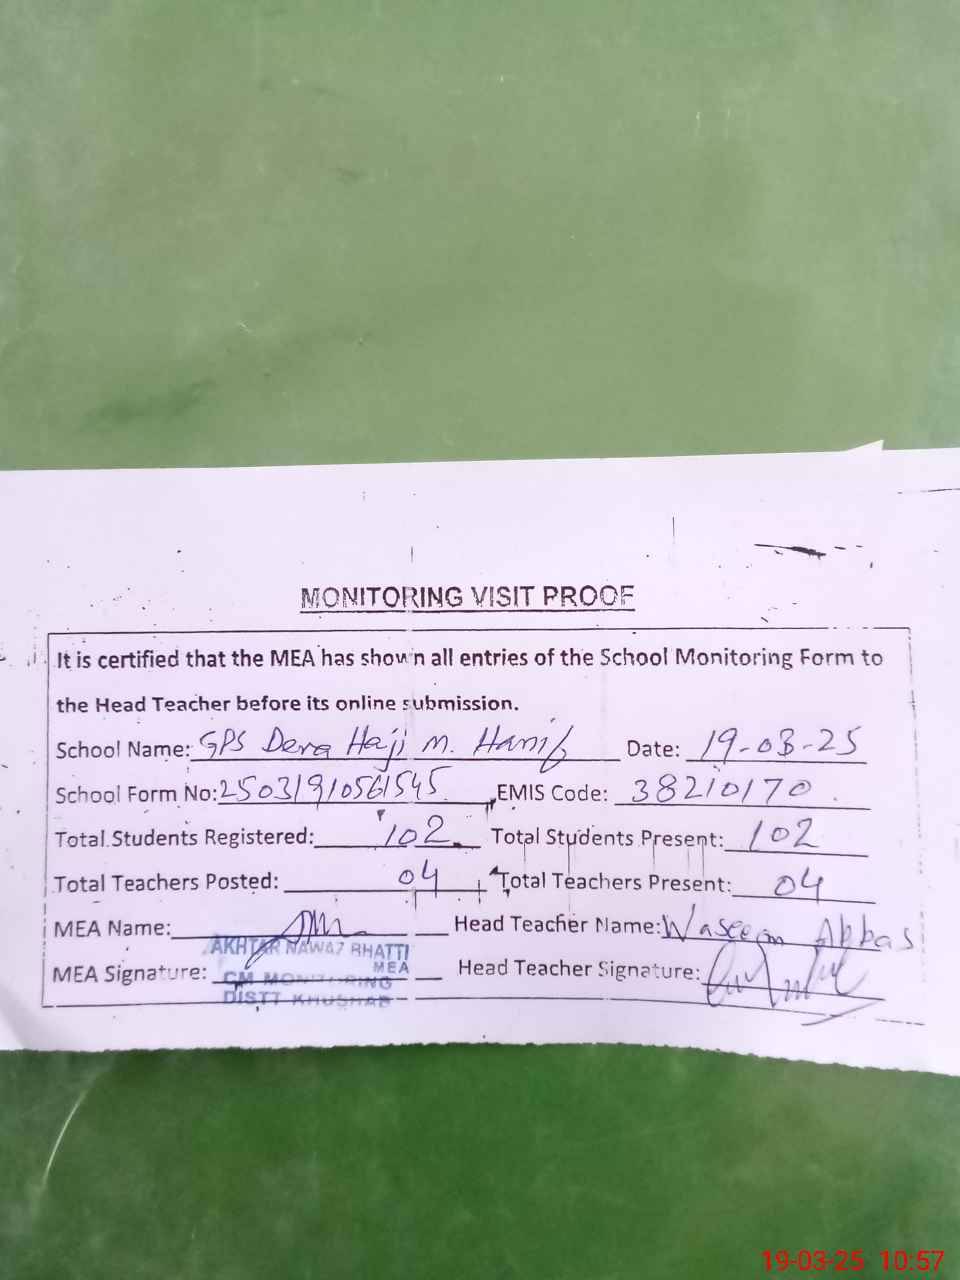 MONITORING VISIT PROOF
It is certified that the MEA has shown all entries of the School Monitoring Form to
the Head Teacher before its online submission.
School Name: GPS Dera Haji M. Hanif Date: 19-03-25
School Form No: 25031910561545 EMIS Code: 38210170
Total Students Registered: 102 Total Students Present: 102
Total Teachers Posted: 04 Total Teachers Present: 04
MEA Name: Head Teacher Name: Waseem Abbas
AKHTAR NAWAZ BHATTI
MEA
MEA Signature: Head Teacher Signature:
CM MONITORING
DISTT KHUSHAB
19-03-25 10:57